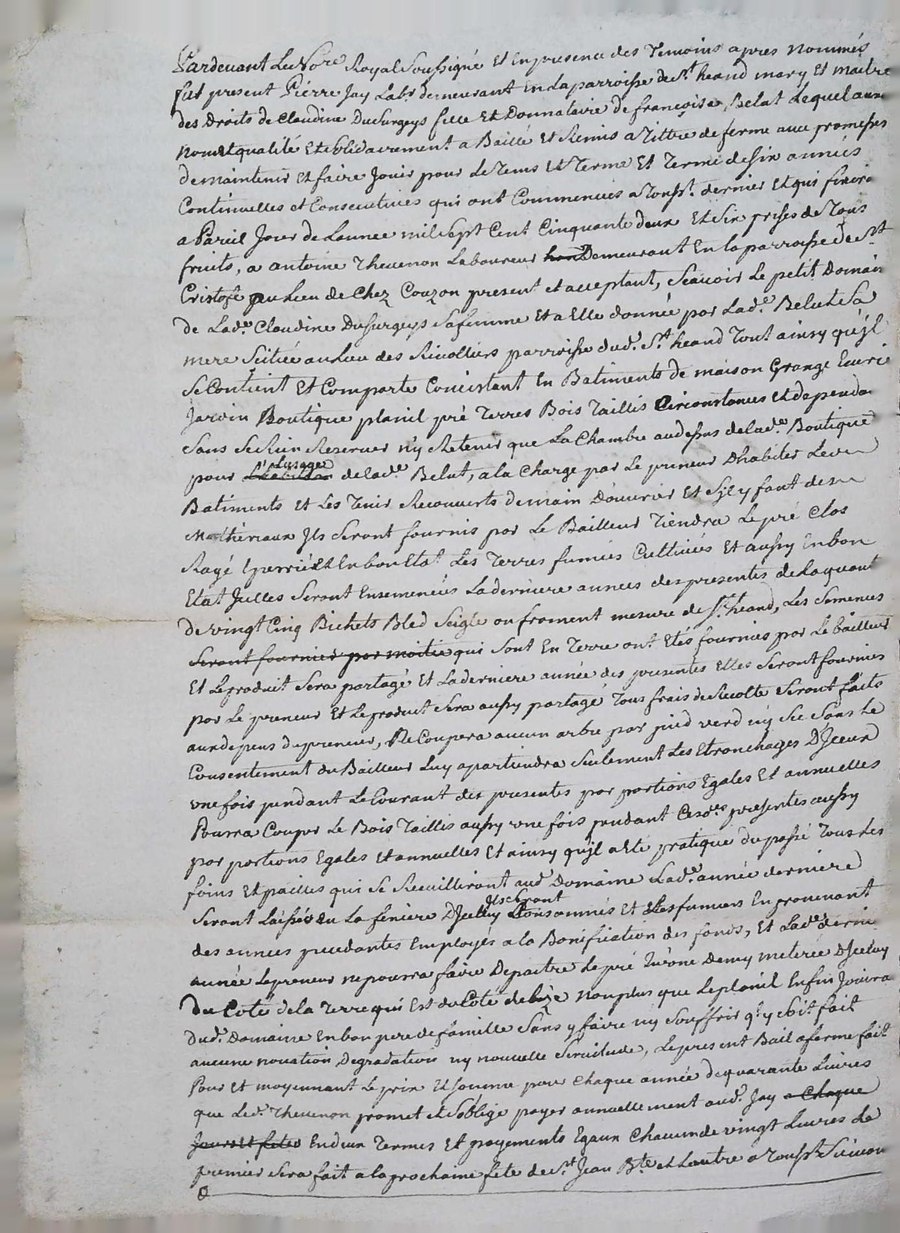 Pardevant Le Nore Royal Soussigné et En presence des Temoins apres nommés
fut present Piérre Jay Labr demeurant En La parroisse de St heand mary Et maitre
des Droits de Claudine DuSurgeys fille Et Donnataire de françoise Belut Lequel aux
nom et qualité Et solidairement a Baillé Et Remis a Tittre de ferme avec promesses
de maintenir Et faire Jouir pour Le Tems Et Terme Et Terme de Six années
Continuelles et Consecutives qui ont Commencées a Toussts dernier Et qui finira
a Pareil Jour de L'année mil Sept Cent Cinquante deux Et Six prises de Tous
fruits, a antoine Thevenon Laboureur Demeurant En la parroisse de St
Cristofe au Lieu de Chez Couzon present et acceptant, Scavoir Le petit Domaine
de Lade Claudine DuSurgeys Sa femme Et a Elle donnée par Lade Belut Sa
mere Scitué au Lieu des Rivolliers parroisse dud. St heand Tout ainsy qu'jl
Se Contient Et Comporte Concistant En Batiments de maison Grange Ecurie
Jardin Boutique planil pré Terres Bois Taillis Circonstances et dependa
Sans Se Rien Reserver n'y Retenir que La Chambre au dessus de lade Boutique
pour L'usage de lade Belut, a la Charge par Le preneur D'habiter Le
Batiments Et Les Tenir Recouverts de main D'ouvrier Et S'il y faut des
Mathériaux Jls Seront fournis par Le Bailleur Tiendra Le pré Clos
Razé Eperriés Et En bon Etat Les Terres fumées Cultivées Et aussy En bon
Etat Juelles Seront Ensemencées La derniere années des presentes de La quant
de vingt Cinq Bichets Bled Seigle ou froment mesure de St heand, Les Semences
Seront fournies par moitié qui Sont En Terre ont Etés fournies par Le bailleur
Et Le produit Sera partagé Et La derniere année des presentes Elles Seront fournies
par Le preneur Et Le produit Sera aussy partagé Tous frais de Recolte Seront faits
aux depens du preneur, Ne Coupera aucun arbre par pied verd n'y Sec Sans Le
Consentement du Bailleur Luy apartiendra Seulement Les Etronchages D'Jceux
une fois pendant Le Courant des presentes par portions Egales Et annuelles
Pourra Couper Le Bois Taillis aussy une fois pendant Ces presentes aussy
par portions Egales et annuelles Et ainsy qu'jl a Eté pratiqué du passé Tous Les
foins Et pailles qui Se Recuilleront aud. Domaine Lade année derniere
Seront Laissés En La feniere D'Jceluy Jls Seront Consommés Et Les fumiers En provenant
des années precedantes Employés a la Bonification des fonds, Et Lade derniere
année Le preneur ne pourra faire Depaitre Le pré qu'une Demy meterée D'Jceluy
Du Coté de la Terre qui Est du Coté de bize non plus que Le planil Enfin Jouira
dud. Domaine En bon pere de famille Sans y faire n'y Souffrir qu'y Soit fait
aucune novation Degradation n'y nouvelle Servitude, Le present Bail a ferme fait
Pour Et moyennant Le prix Et Somme pour Chaque année de quarante Livres
que Led. Thevenon promet et s'oblige payer annuellement aud. Jay a Chaque
Jours et fetes En deux Termes Et payements Egaux Chacun de vingt Livres Le
premier Sera fait a la prochaine fete de St Jean Bte et L'autre a Toussts Suivan